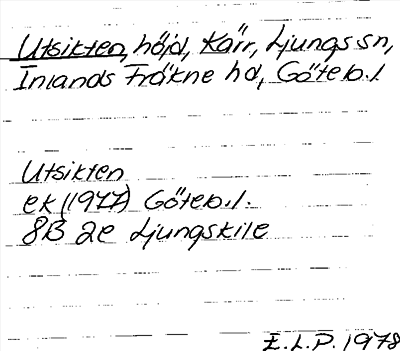 Utsikten, höjd, Kärr, Ljungs sn,
Inlands Fräkne hd, Göteb.l.
Utsikten
ek (1977) Göteb.l.
8B 2e Ljungskile
E.L.P. 1978